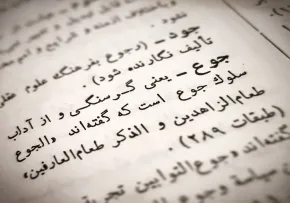 نمود.
جود – (رجوع بفرهنگ علوم عقلی
تألیف نگارنده شود).
جوع – یعنی گرسنگی و از آداب
سلوك جوع است که گفته‌اند والجوع
طعام‌الزاهدین و الذکر طعام‌العارفین،
(طبقات ۲۸۹).
گفته‌اند وجوع‌التوابین تجربة
سیاسة وجوع